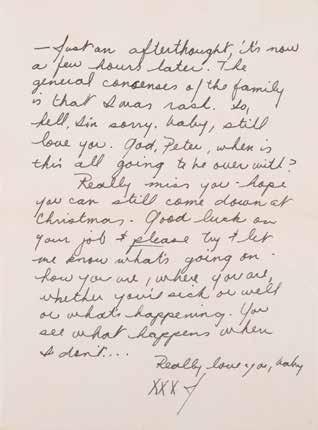 — Just an afterthought, it's now
a few hours later. The
general concenses of the family
is that I was rash. So,
hell, I'm sorry. baby, still
love you. God, Peter, when is
this all going to be over with?
Really miss you - hope
you can still come down at
Christmas. Good luck on
your job & please try & let
me know what's going on -
how you are, where you are,
whether you're sick or well
or what's happening. You
see what happens when
I don't....
Really, love you, baby
XXX J